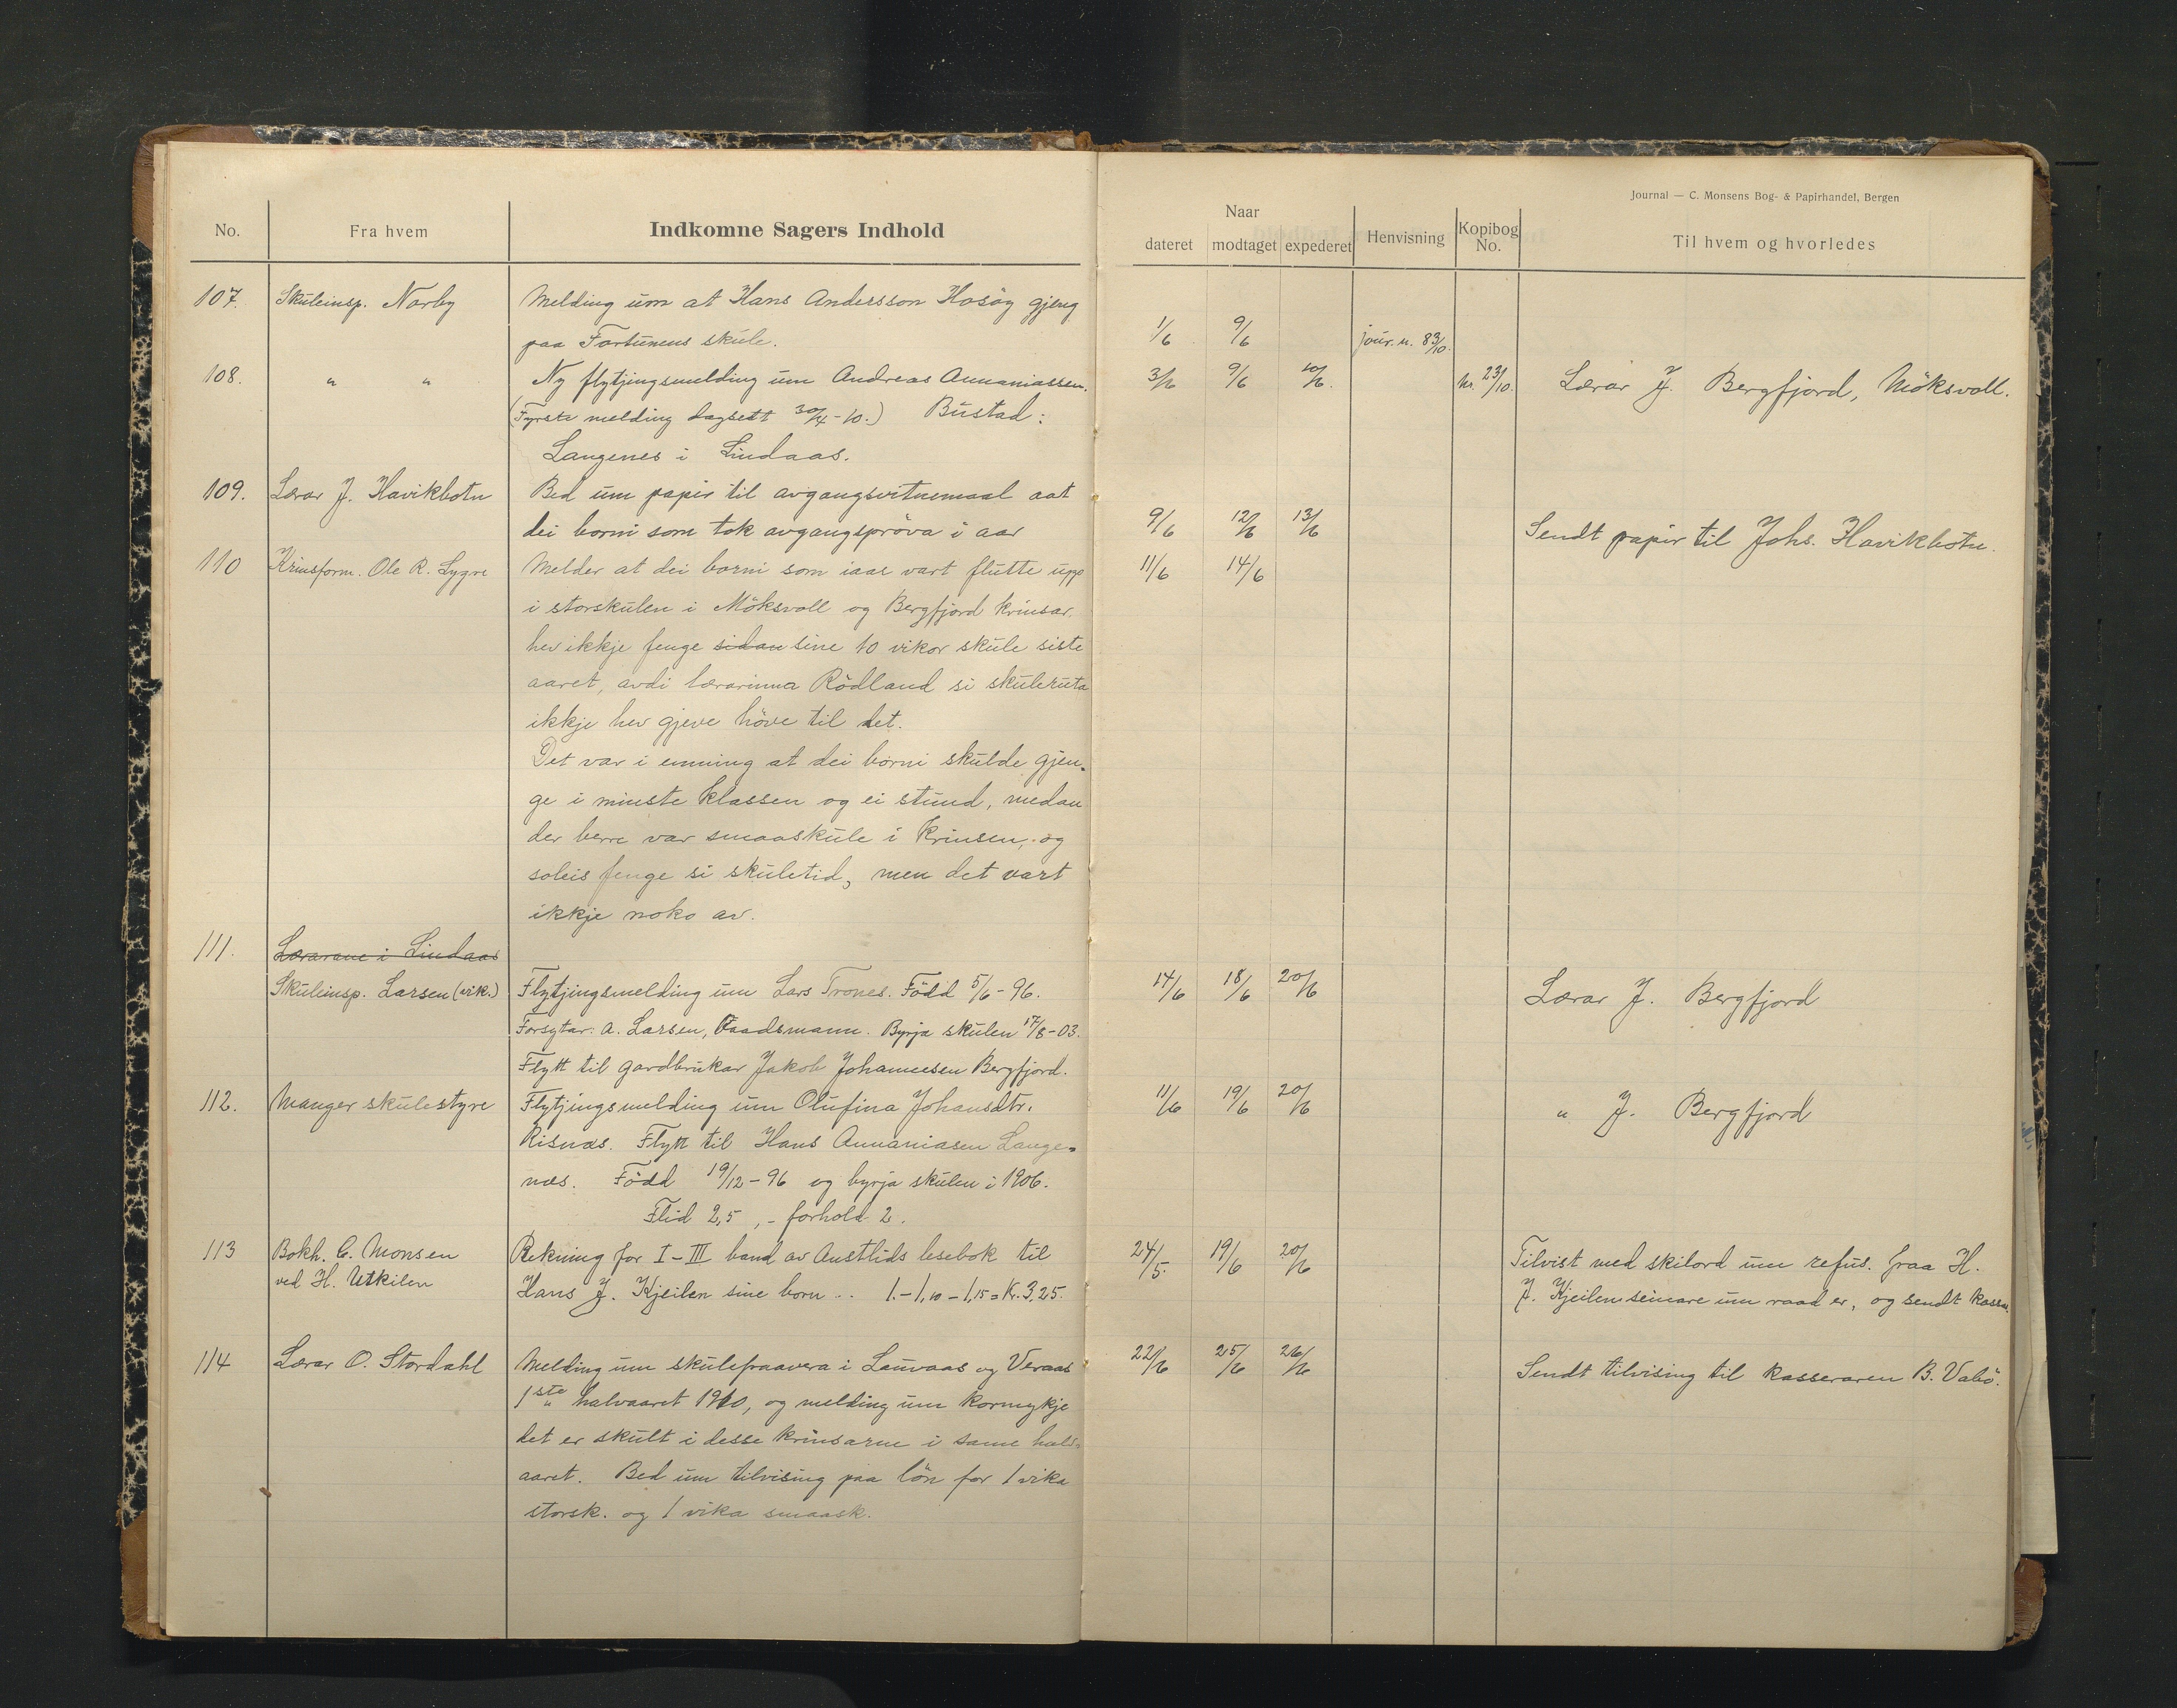 Journal — C. Monsens Bog- & Papirhandel, Bergen
No. Fra hvem Indkomne Sagers Indhold
Naar
dateret modtaget expederet Henvisning Kopibog No. Til hvem og hvorledes
107. Skuleinsp. Narby Melding um at Hans Andersson Hosöy gjeng
paa Fortunens skule. 1/6 9/6 jour. n. 83/10.
108. " " Ny flytjingsmelding um Andreas Annaniassen. 3/6 9/6 10/6. nr. 23/10. Lærar J. Bergfjord, Möksvoll.
(Fyrste melding dagsett 30/4-10.) Bustad:
Langenes i Lindaas.
109. Lærar J. Havikbotn Bed um papir til avgangsvitnemaal aat
dei borni som tok avgangspröva i aar 9/6 12/6 13/6 Sendt papir til Johs. Havikbotn.
110 Krinsform. Ole R. Lygre Melder at dei borni som iaar vart flutte upp 11/6 14/6
i storskulen i Möksvoll og Bergfjord krinsar.
hev ikkje fenge sidan sine 10 vikor skule siste
aaret, avdi lærarinna Rödland si skuleruta
ikkje hev gjeve höve til det.
Det var i emning at dei borni skulde gjen-
ge i minste klassen og ei stund, medan
der berre var smaaskule i krinsen, og
soleis fenge si skuletid, men det vart
ikkje noko av.
111. Lærarane i Lindaas
Skuleinsp. Larsen (vik.) Flytjingsmelding um Lars Trones. Född 5/6-96. 14/6 18/6 20/6 Lærar J. Bergfjord
Forsytar: A. Larsen, Baadsmann. Byrja skulen 17/8-03.
Flytt til gardbrukar Jakob Johannesen Bergfjord.
112. Manger skulestyre Flytjingsmelding um Olufina Johansdtr. 11/6 19/6 20/6 " J. Bergfjord
Risnæs. Flytt til Hans Annaniasen Lange-
næs. Född 19/12-96 og byrja skulen i 1906.
Flid 2,5, - forhold 2.
113 Bokh. C. Monsen Rekning for I-III band av Austlids lesebok til 24/5. 19/6 20/6 Tilvist med skilord um refus. fraa H.
ved H. Utkilen Hans J. Kjeilen sine born .. 1.-1,10-1,15=Kr. 3,25. J. Kjeilen seinare um raad er, og sendt kassa.
114 Lærar O. Stordahl Melding um skulepaavera i Lauvaas og Veraas 22/6 25/6 26/6 Sendt tilvising til kasseraren B. Vabö.
1ste halvaaret 1910, og melding um kormykje
det er skult i desse krinsarne i same halv-
aaret. Bed um tilvising paa lön for 1 vika
storsk. og 1 vika smaask.